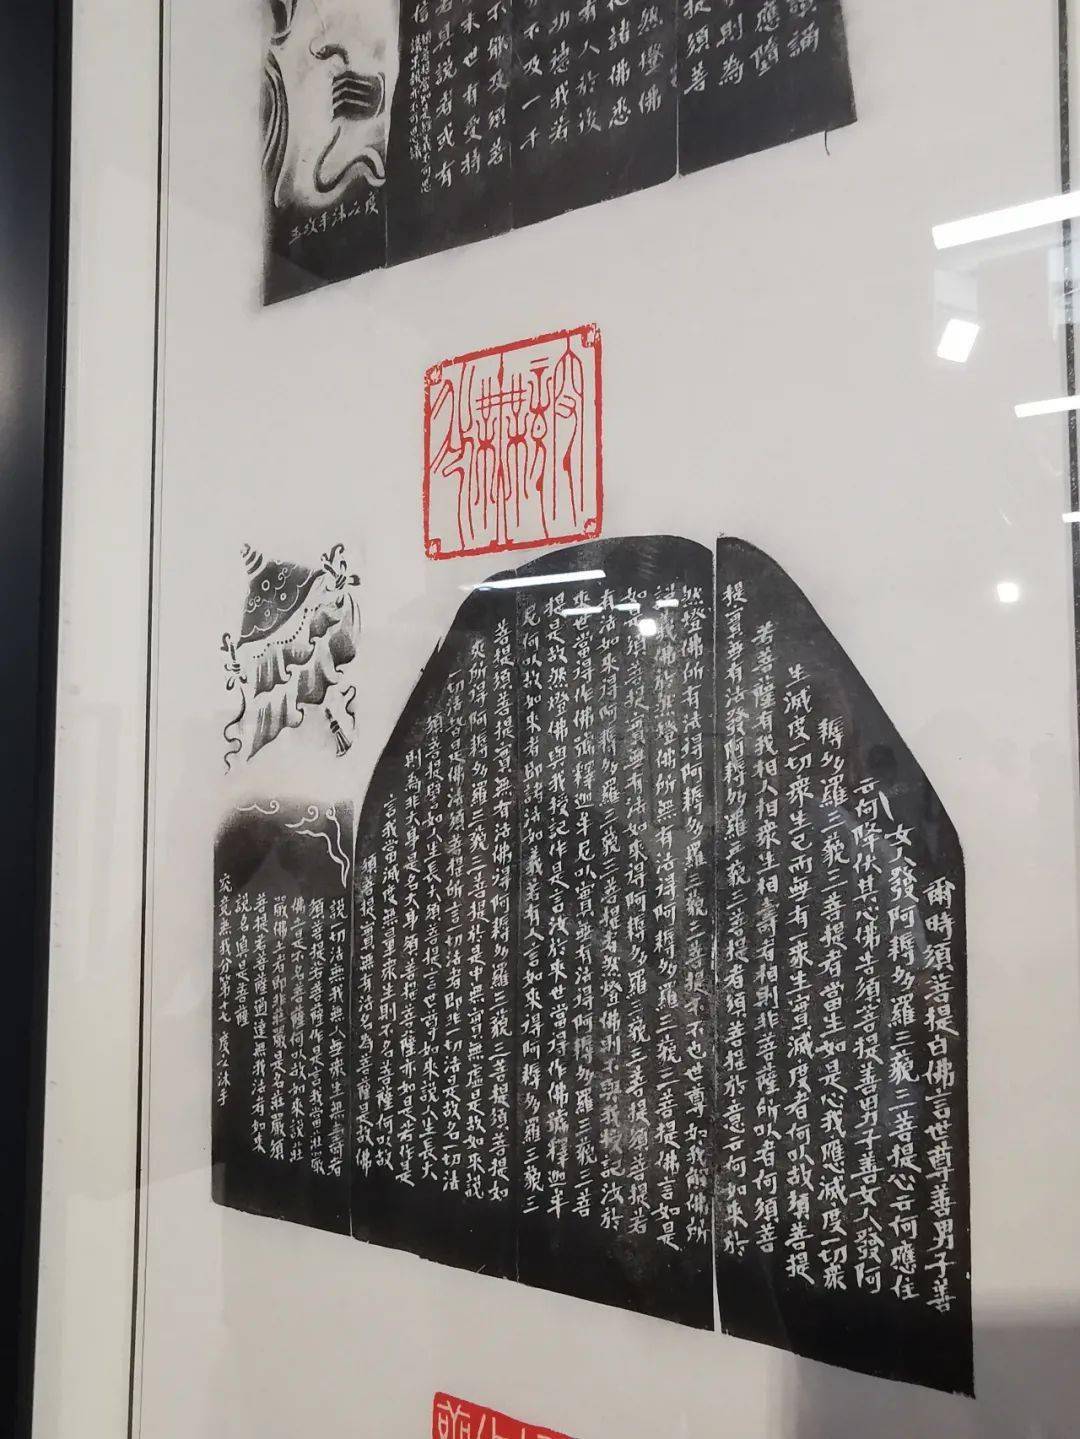 讀誦
應隨
則為
提須菩
然燈佛
諸佛悉
有人於後
功德我若
分不及一千
不能及須菩
末世有受持
者具說者或有
爾時須菩提白佛言世尊善男子善
女人發阿耨多羅三藐三菩提心云何應住
云何降伏其心佛告須菩提善男子善女人發阿
耨多羅三藐三菩提者當生如是心我應滅度一切衆
生滅度一切衆生已而無有一衆生實滅度者何以故須菩提
若菩薩有我相人相衆生相壽者相則非菩薩所以者何須菩
提實無有法發阿耨多羅三藐三菩提者須菩提於意云何如來於
然燈佛所有法得阿耨多羅三藐三菩提不不也世尊如我解佛所
說義佛於然燈佛所無有法得阿耨多羅三藐三菩提佛言如是
如是須菩提實無有法如來得阿耨多羅三藐三菩提須菩提若
有法如來得阿耨多羅三藐三菩提者然燈佛則不與我授記汝於
來世當得作佛號釋迦牟尼以實無有法得阿耨多羅三藐三菩
提是故然燈佛與我授記作是言汝於來世當得作佛號釋迦牟
尼何以故如來者即諸法如義若有人言如來得阿耨多羅三藐三
菩提須菩提實無有法佛得阿耨多羅三藐三菩提須菩提如
來所得阿耨多羅三藐三菩提於是中無實無虛是故如來說
一切法皆是佛法須菩提所言一切法者即非一切法是故名一切法
須菩提譬如人身長大須菩提言世尊如來說人身長大
則為非大身是名大身須菩提菩薩亦如是若作是
言我當滅度無量衆生則不名菩薩何以故
須菩提實無有法名為菩薩是故佛
說一切法無我無人無衆生無壽者
須菩提若菩薩作是言我當莊嚴
佛土是不名菩薩何以故如來說莊
嚴佛土者即非莊嚴是名莊嚴須
菩提若菩薩通達無我法者如來
說名真是菩薩
究竟無我分第十七 度公沐手